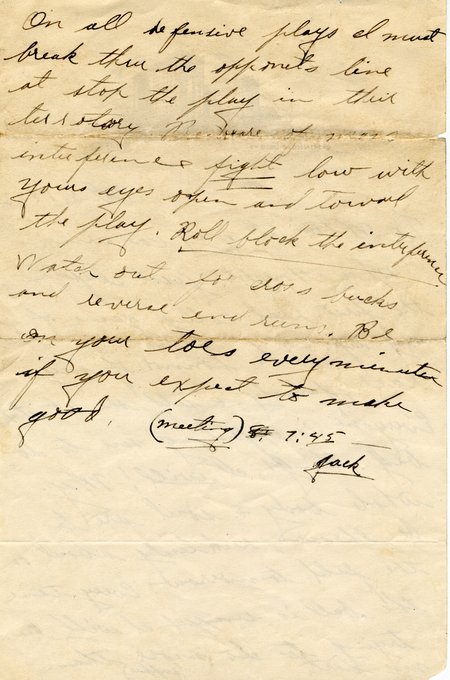 On all defensive plays I must
break thru the opponets line
at stop the play in their
terrotory Beware of mass
interference fight low with
yours eyes open and toward
the play. Roll block the interference
Watch out for cross bucks
and reverse end runs. Be
on your toes every minute
if you expect to make
good. (meeting) 7:45
Jack